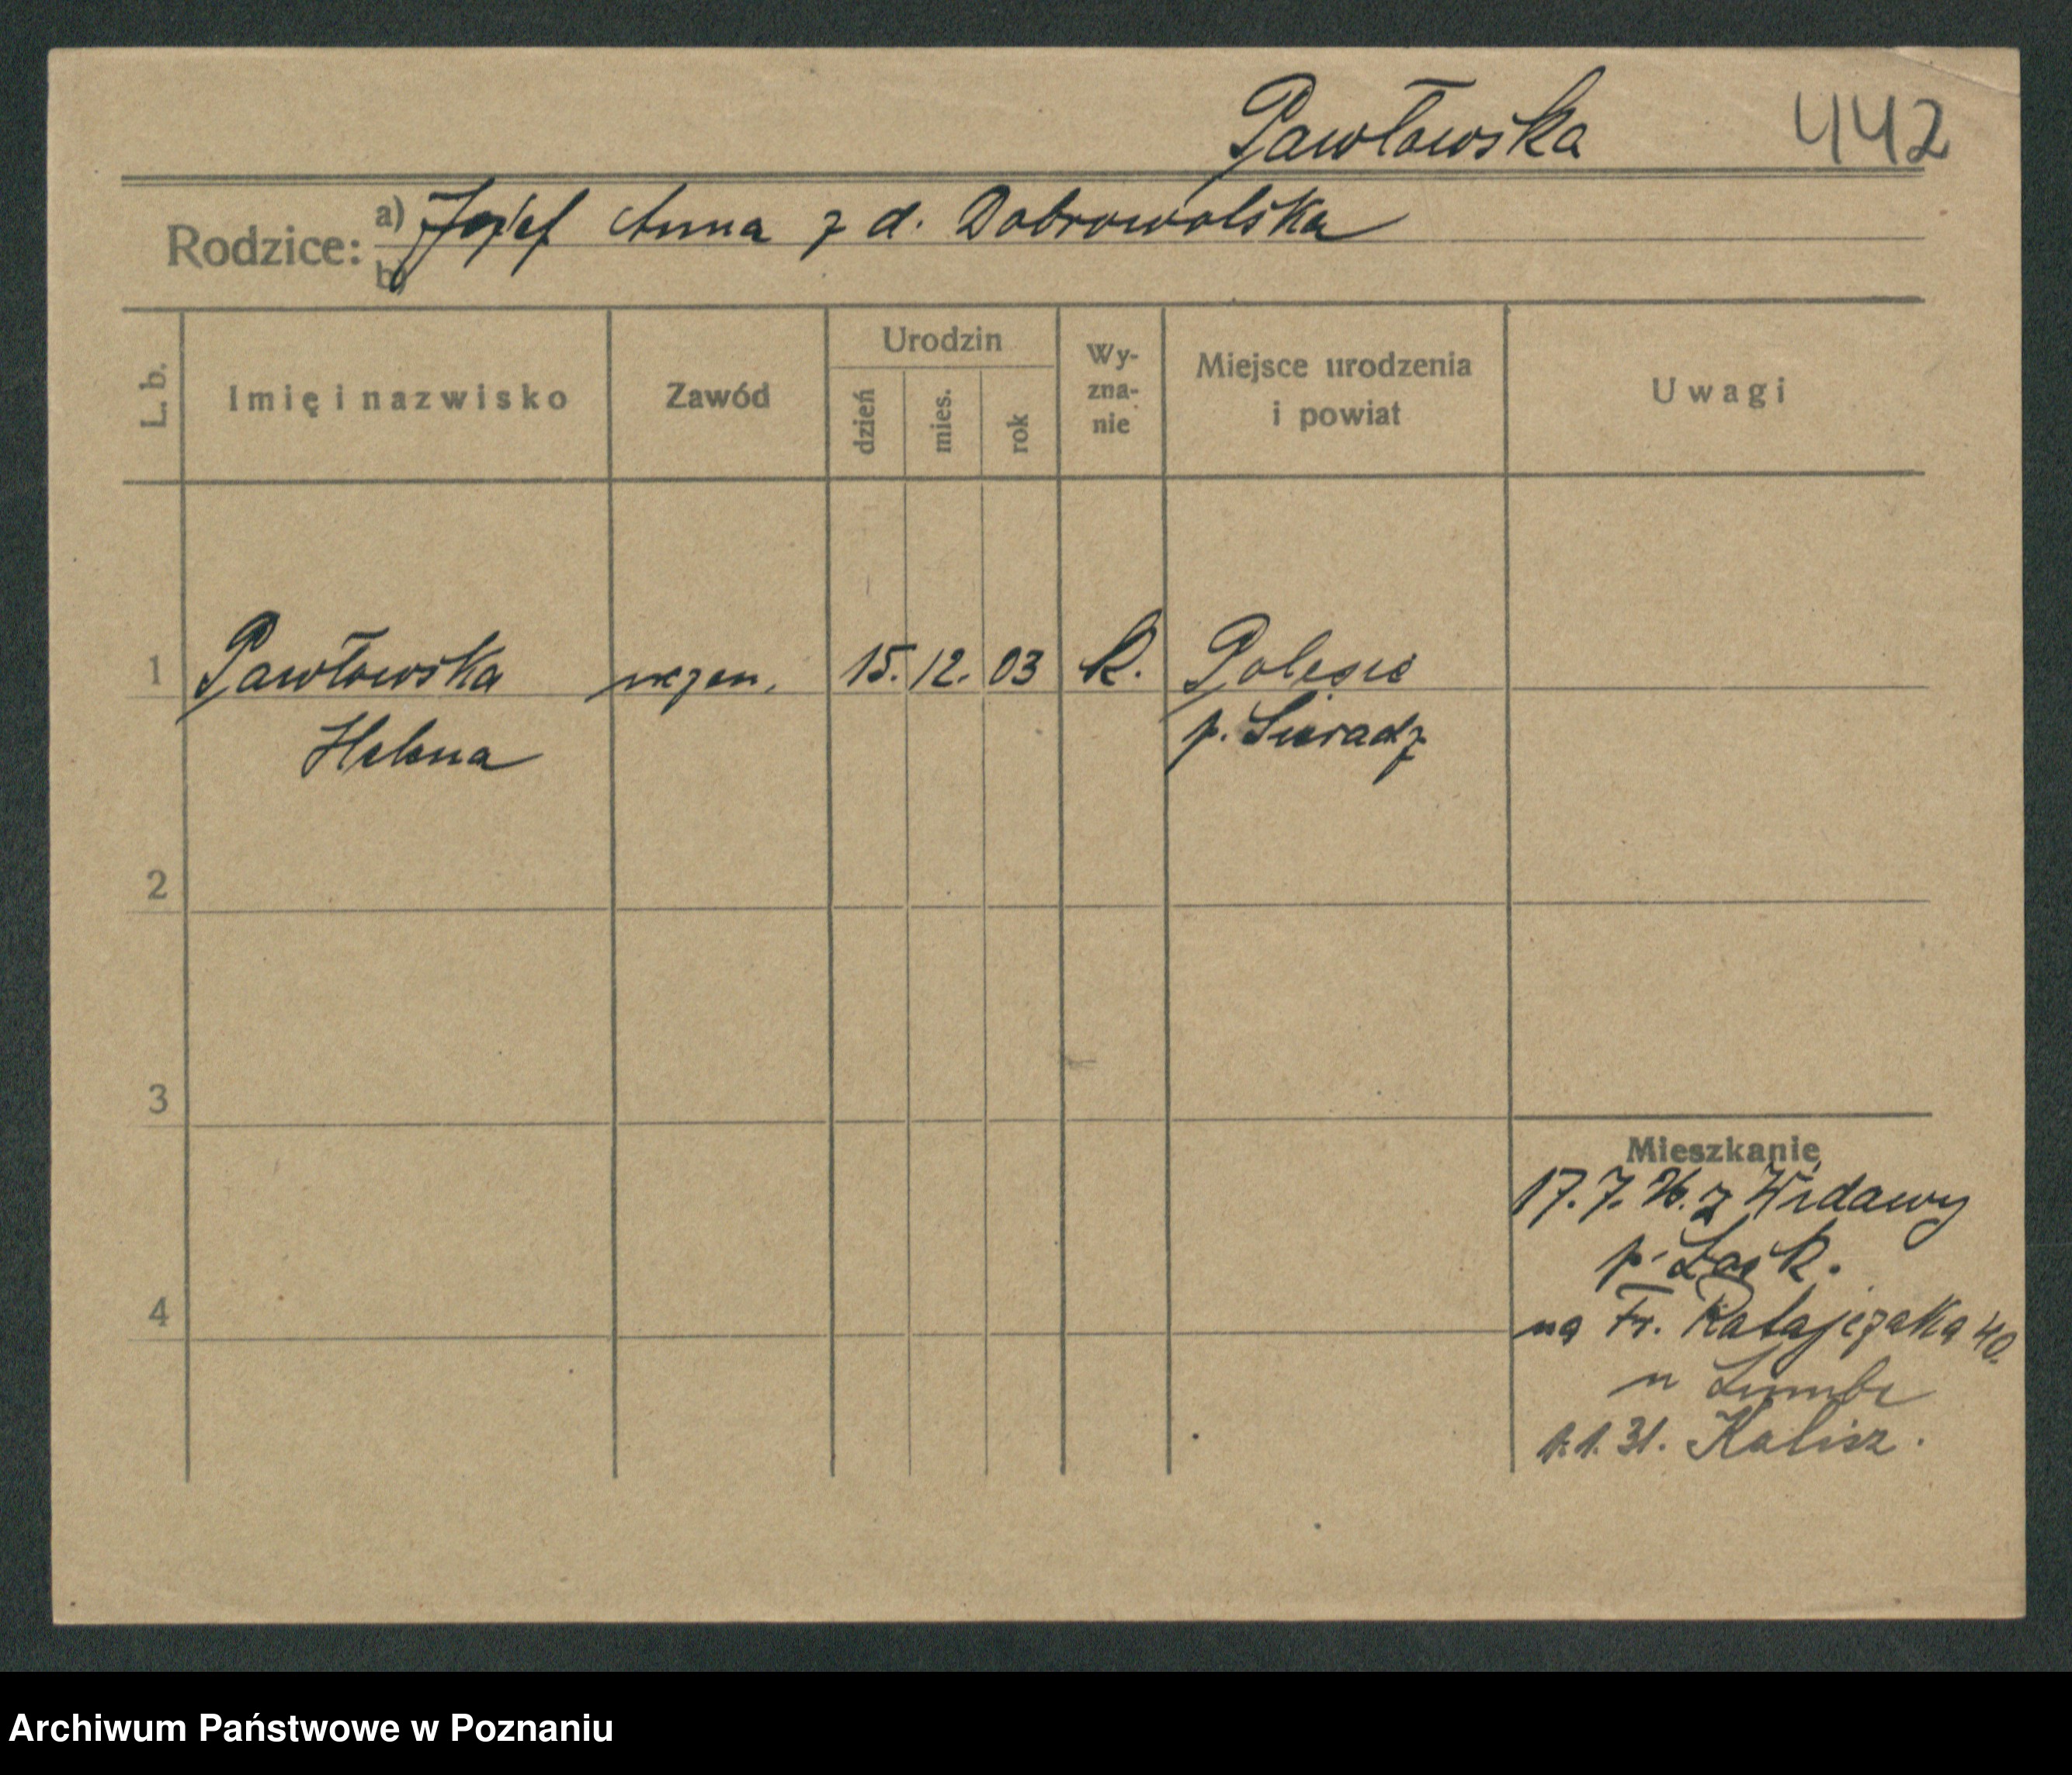 Pawłowska 442
Rodzice: a) Józef Anna z d. Dobrowolska
b)
L. b. Imię i nazwisko Zawód Urodzin dzień mies. rok Wy-zna-nie Miejsce urodzenia i powiat Uwagi
1 Pawłowska 15. 12. 03 k. Polesie
Helena p. Sieradz
2
3
Mieszkanie
17. 7. z Widawy
p. Łask.
4
na Fr. Ratajczaka 40.
1.1.31. Kalisz.
Archiwum Państwowe w Poznaniu